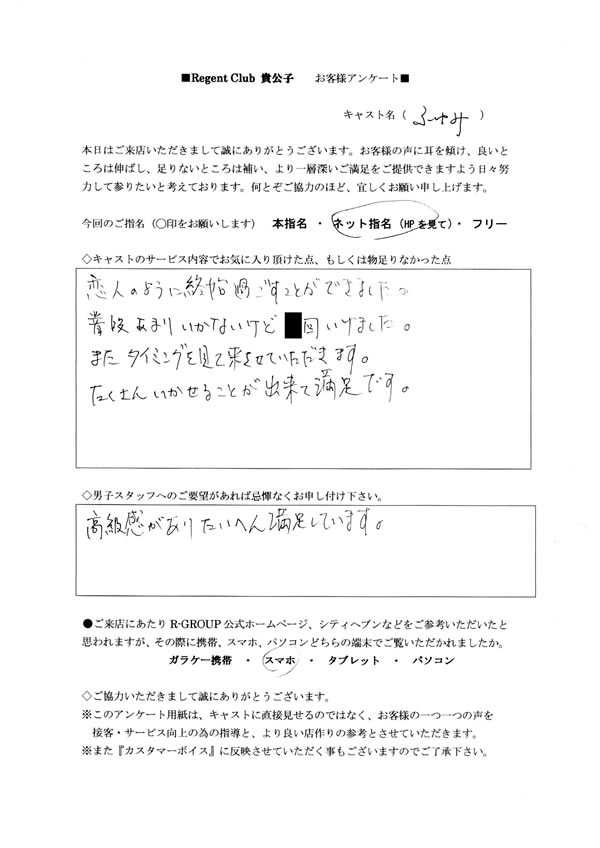 ■Regent Club 貴公子　お客様アンケート■
キャスト名（ ふゆみ ）
本日はご来店いただきまして誠にありがとうございます。お客様の声に耳を傾け、良いと
ころは伸ばし、足りないところは補い、より一層深いご満足をご提供できますよう日々努
力して参りたいと考えております。何とぞご協力のほど、宜しくお願い申し上げます。
今回のご指名（〇印をお願いします）　本指名 ・ ネット指名（HPを見て）・ フリー
◇キャストのサービス内容でお気に入り頂けた点、もしくは物足りなかった点
恋人のように終始過ごすことができました。
普段あまりいかないけど 回いけました。
またタイミングを見て来させていただきます。
たくさんいかせることが出来て満足です。
◇男子スタッフへのご要望があれば忌憚なくお申し付け下さい。
高級感がありたいへん満足しています。
●ご来店にあたり R-GROUP 公式ホームページ、シティヘブンなどをご参考いただいたと
思われますが、その際に携帯、スマホ、パソコンどちらの端末でご覧いただかれましたか。
ガラケー携帯　・　スマホ　・　タブレット　・　パソコン
◇ご協力いただきまして誠にありがとうございます。
※このアンケート用紙は、キャストに直接見せるのではなく、お客様の一つ一つの声を
接客・サービス向上の為の指導と、より良い店作りの参考とさせていただきます。
※また『カスタマーボイス』に反映させていただく事もございますのでご了承下さい。